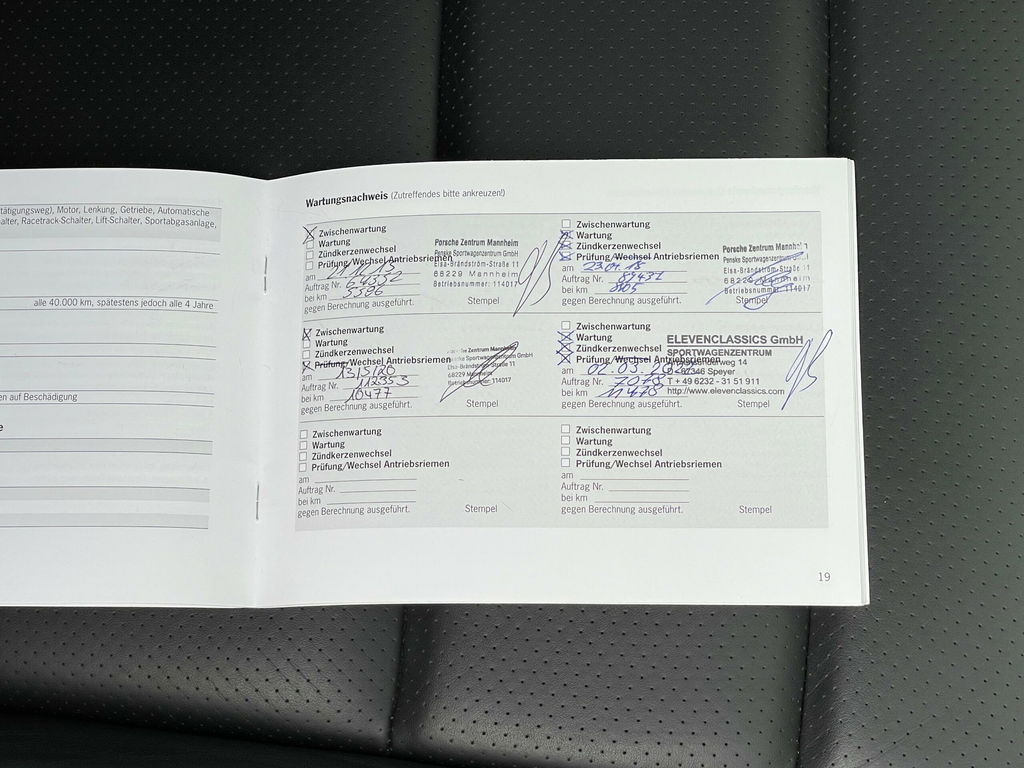 tätigungsweg), Motor, Lenkung, Getriebe, Automatische
alter, Racetrack-Schalter, Lift-Schalter, Sportabgasanlage,
alle 40.000 km, spätestens jedoch alle 4 Jahre
en auf Beschädigung
e
Wartungsnachweis (Zutreffendes bitte ankreuzen!)
Zwischenwartung
Wartung
Zündkerzenwechsel
Prüfung/Wechsel Antriebsriemen
am
Auftrag Nr.
bei km 5506
gegen Berechnung ausgeführt.
Porsche Zentrum Mannheim
Penske Sportwagenzentrum GmbH
Elsa-Brändström-Straße 11
68229 Mannheim
Betriebsnummer: 114017
Stempel
Zwischenwartung
Wartung
Zündkerzenwechsel
Prüfung/Wechsel Antriebsriemen
am 23.01.18
Auftrag Nr. 89431
bei km 8105
gegen Berechnung ausgeführt.
Porsche Zentrum Mannheim
Penske Sportwagenzentrum GmbH
Elsa-Brändström-Straße 11
68229 Mannheim
Betriebsnummer: 114017
Stempel
Zwischenwartung
Wartung
Zündkerzenwechsel
Prüfung/Wechsel Antriebsriemen
am 13/5/20
Auftrag Nr. 112353
bei km 10477
gegen Berechnung ausgeführt.
Porsche Zentrum Mannheim
Penske Sportwagenzentrum GmbH
Elsa-Brändström-Straße 11
68229 Mannheim
Betriebsnummer: 114017
Stempel
Zwischenwartung
Wartung
Zündkerzenwechsel
Prüfung/Wechsel Antriebsriemen
am 02.03.
Auftrag Nr. 7078
bei km 11478
gegen Berechnung ausgeführt.
ELEVENCLASSICS GmbH
SPORTWAGENZENTRUM
14
D - 67346 Speyer
T + 49 6232 - 31 51 911
http://www.elevenclassics.com
Stempel
Zwischenwartung
Wartung
Zündkerzenwechsel
Prüfung/Wechsel Antriebsriemen
am
Auftrag Nr.
bei km
gegen Berechnung ausgeführt.
Stempel
Zwischenwartung
Wartung
Zündkerzenwechsel
Prüfung/Wechsel Antriebsriemen
am
Auftrag Nr.
bei km
gegen Berechnung ausgeführt.
Stempel
19